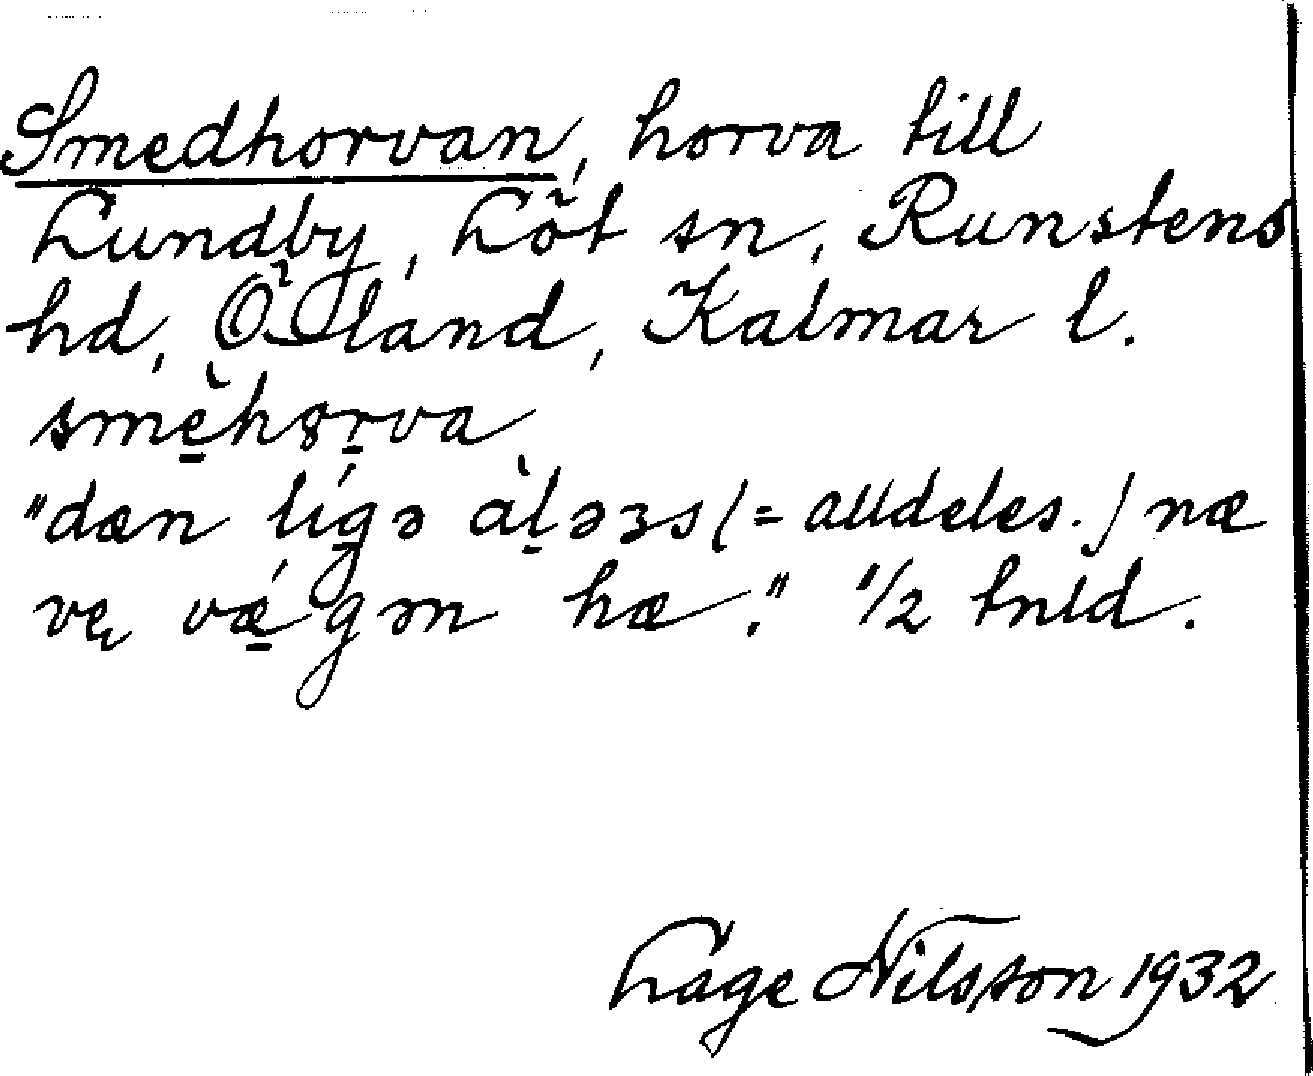 Smedhorvan, horva till
Lundby, Löt sn, Runstens
hd, Öland, Kalmar l.
smè̱hꝍr̠va
"dæn lígə àḷəʒs (= alldeles.) næ
vę vǽ̱gən hæ." 1/2 tnld.
Lage Nilsson 1932